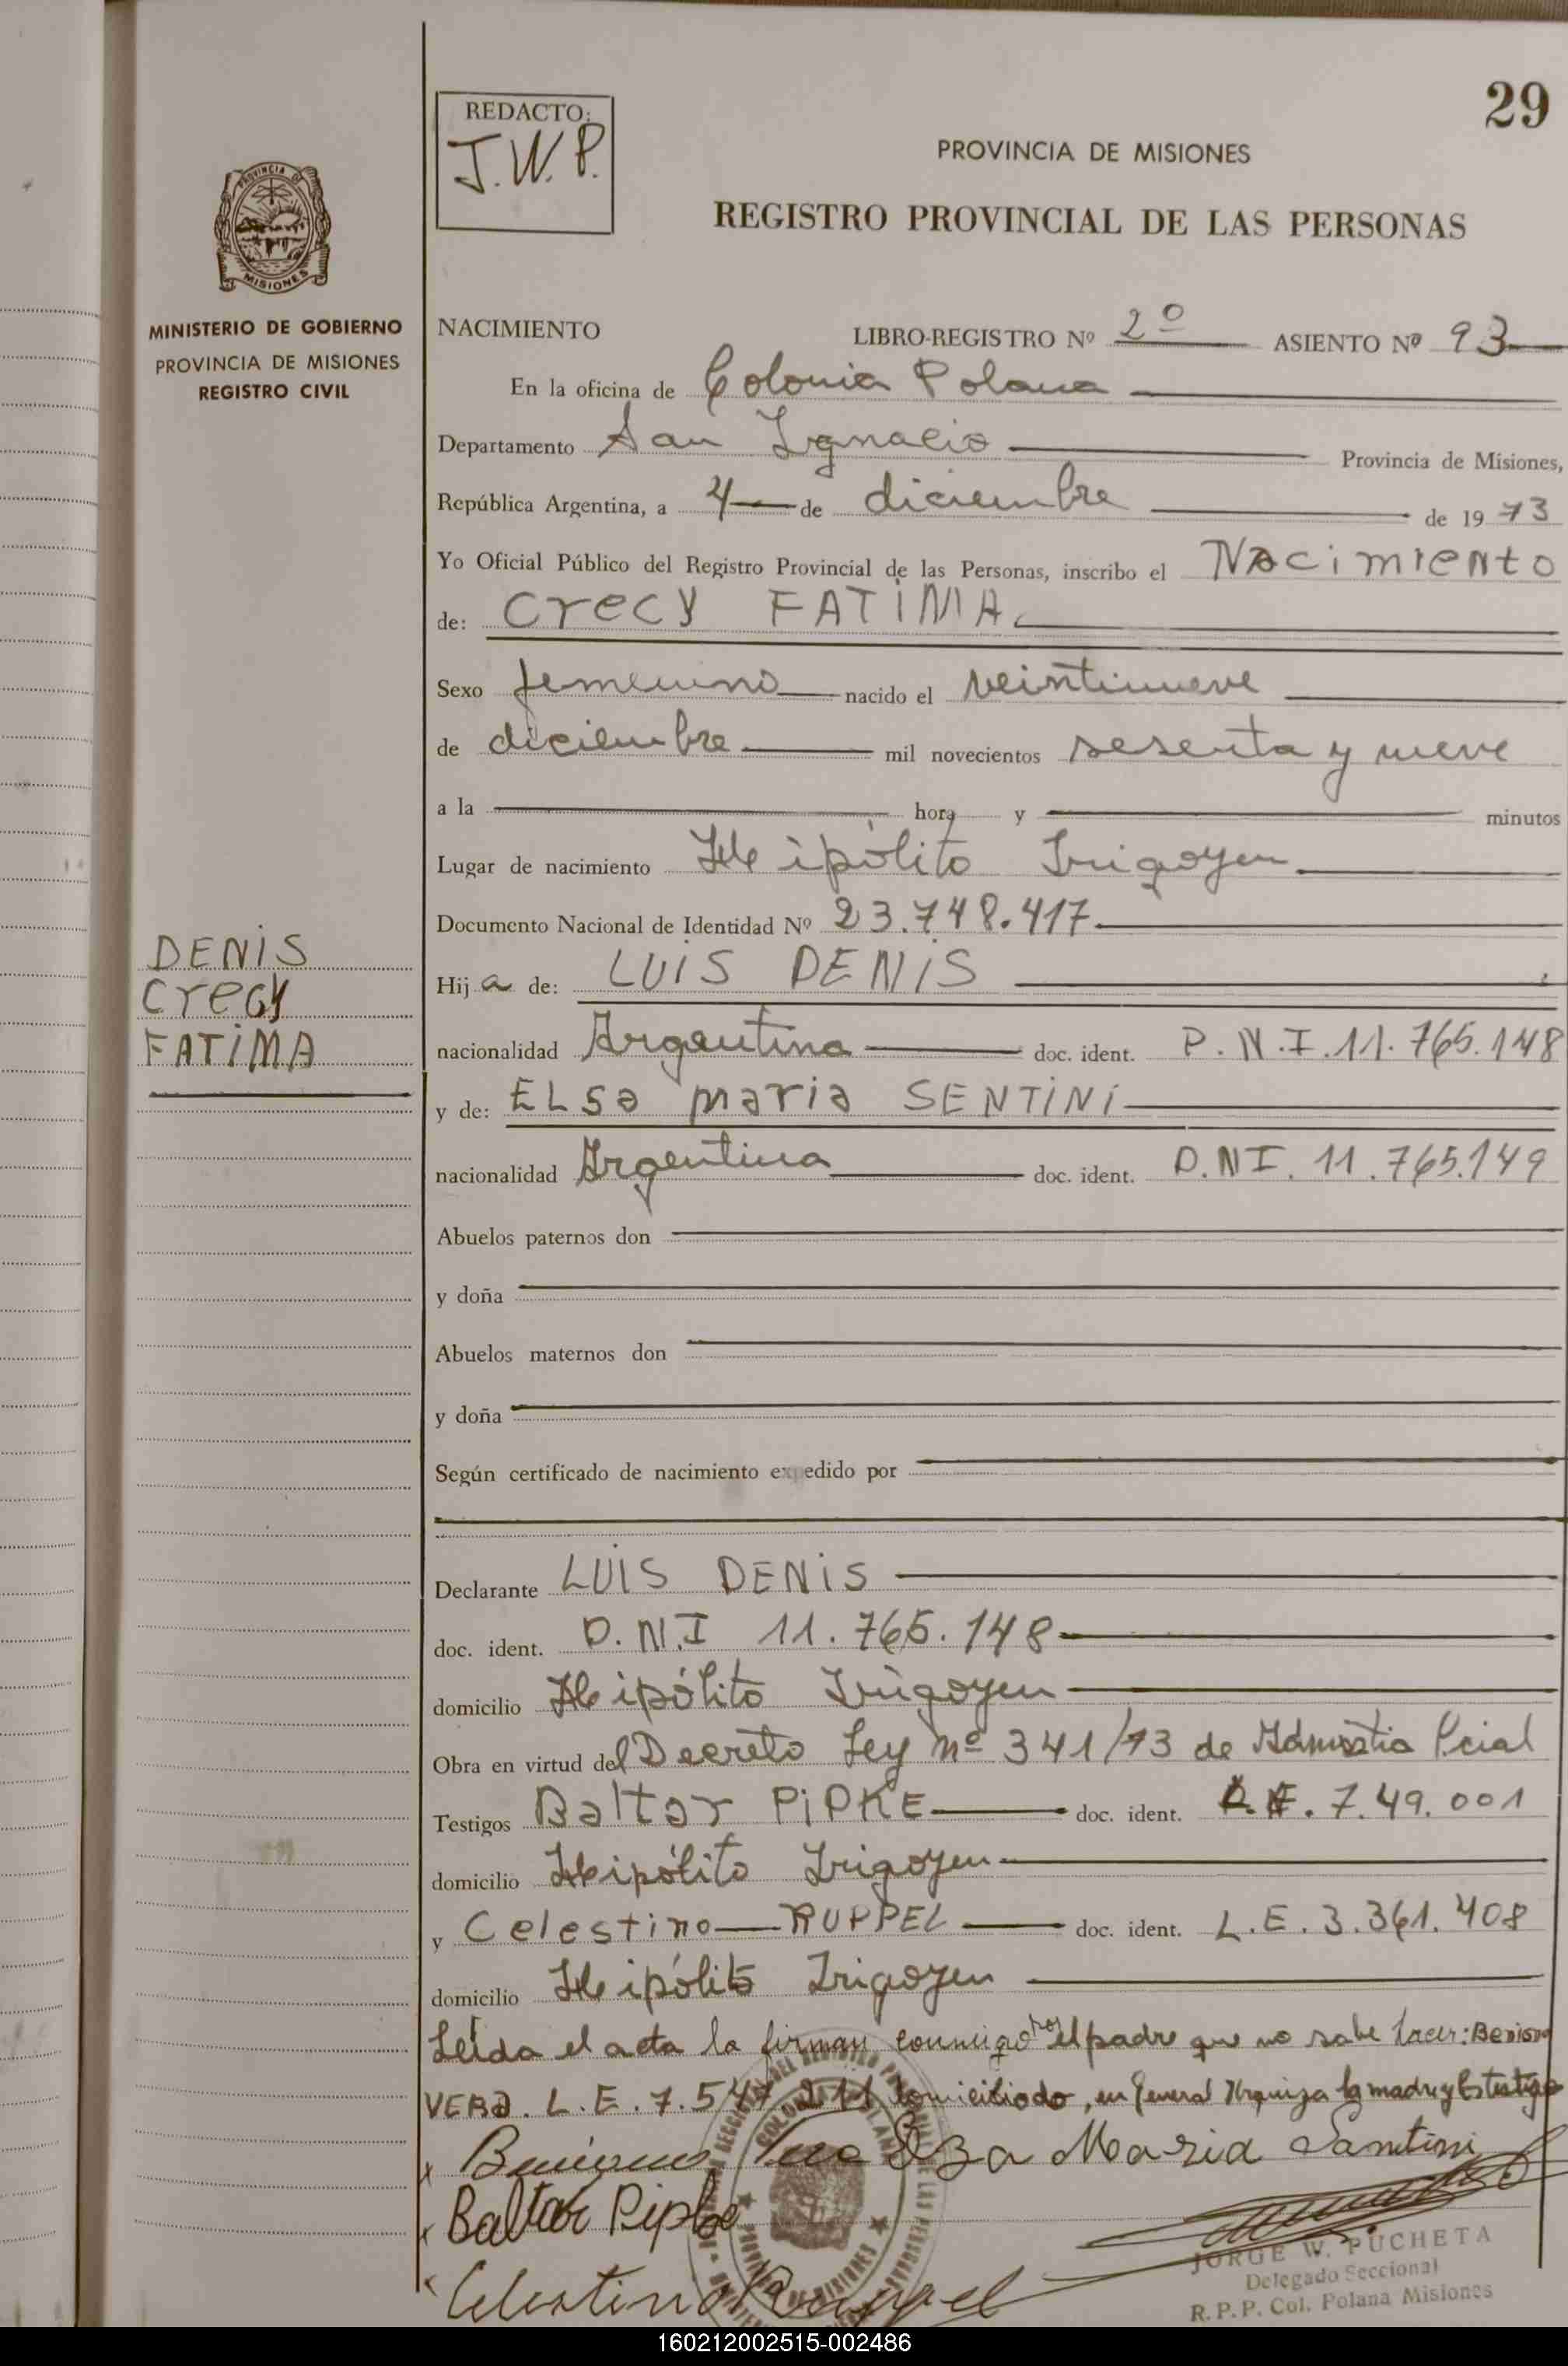 29
REDACTO:
J.W.P.
PROVINCIA DE MISIONES
REGISTRO PROVINCIAL DE LAS PERSONAS
PROVINCIA DE
MISIONES
MINISTERIO DE GOBIERNO
PROVINCIA DE MISIONES
REGISTRO CIVIL
NACIMIENTO LIBRO-REGISTRO Nº 2º ASIENTO Nº 93
En la oficina de Colonia Polana
Departamento San Ignacio Provincia de Misiones,
República Argentina, a 4 de diciembre de 19 73
Yo Oficial Público del Registro Provincial de las Personas, inscribo el Nacimiento
de: Crecy FATIMA
Sexo femenino nacido el veintinueve
de diciembre mil novecientos sesenta y nueve
a la hora y minutos
Lugar de nacimiento Hipólito Irigoyen
Documento Nacional de Identidad Nº 23.748.417
DENIS
Crecy
FATIMA
Hij a de: LUIS DENIS
nacionalidad Argentina doc. ident. D.N.I. 11.765.148
y de: ELSa maria SENTINI
nacionalidad Argentina doc. ident. D.N.I. 11.765.149
Abuelos paternos don
y doña
Abuelos maternos don
y doña
Según certificado de nacimiento expedido por
Declarante LUIS DENIS
doc. ident. D.N.I 11.765.148
domicilio Hipólito Irigoyen
Obra en virtud del Decreto Ley nº 341/73 de Pcial
Testigos Baltar PIPKE doc. ident. 7.49.001
domicilio Hipólito Irigoyen
y Celestino RUPPEL doc. ident. L.E. 3.361.408
domicilio Hipólito Irigoyen
Leída el acta la firman conmigo por el padre que no sabe hacer:
VERa. L.E. 7.547.211 domiciliado, en General Urquiza la madre y
Elsa Maria Santini
Baltar Pipke
Celestino Ruppel
JORGE W. PUCHETA
Delegado Seccional
R.P.P. Col. Polana Misiones
160212002515-002486